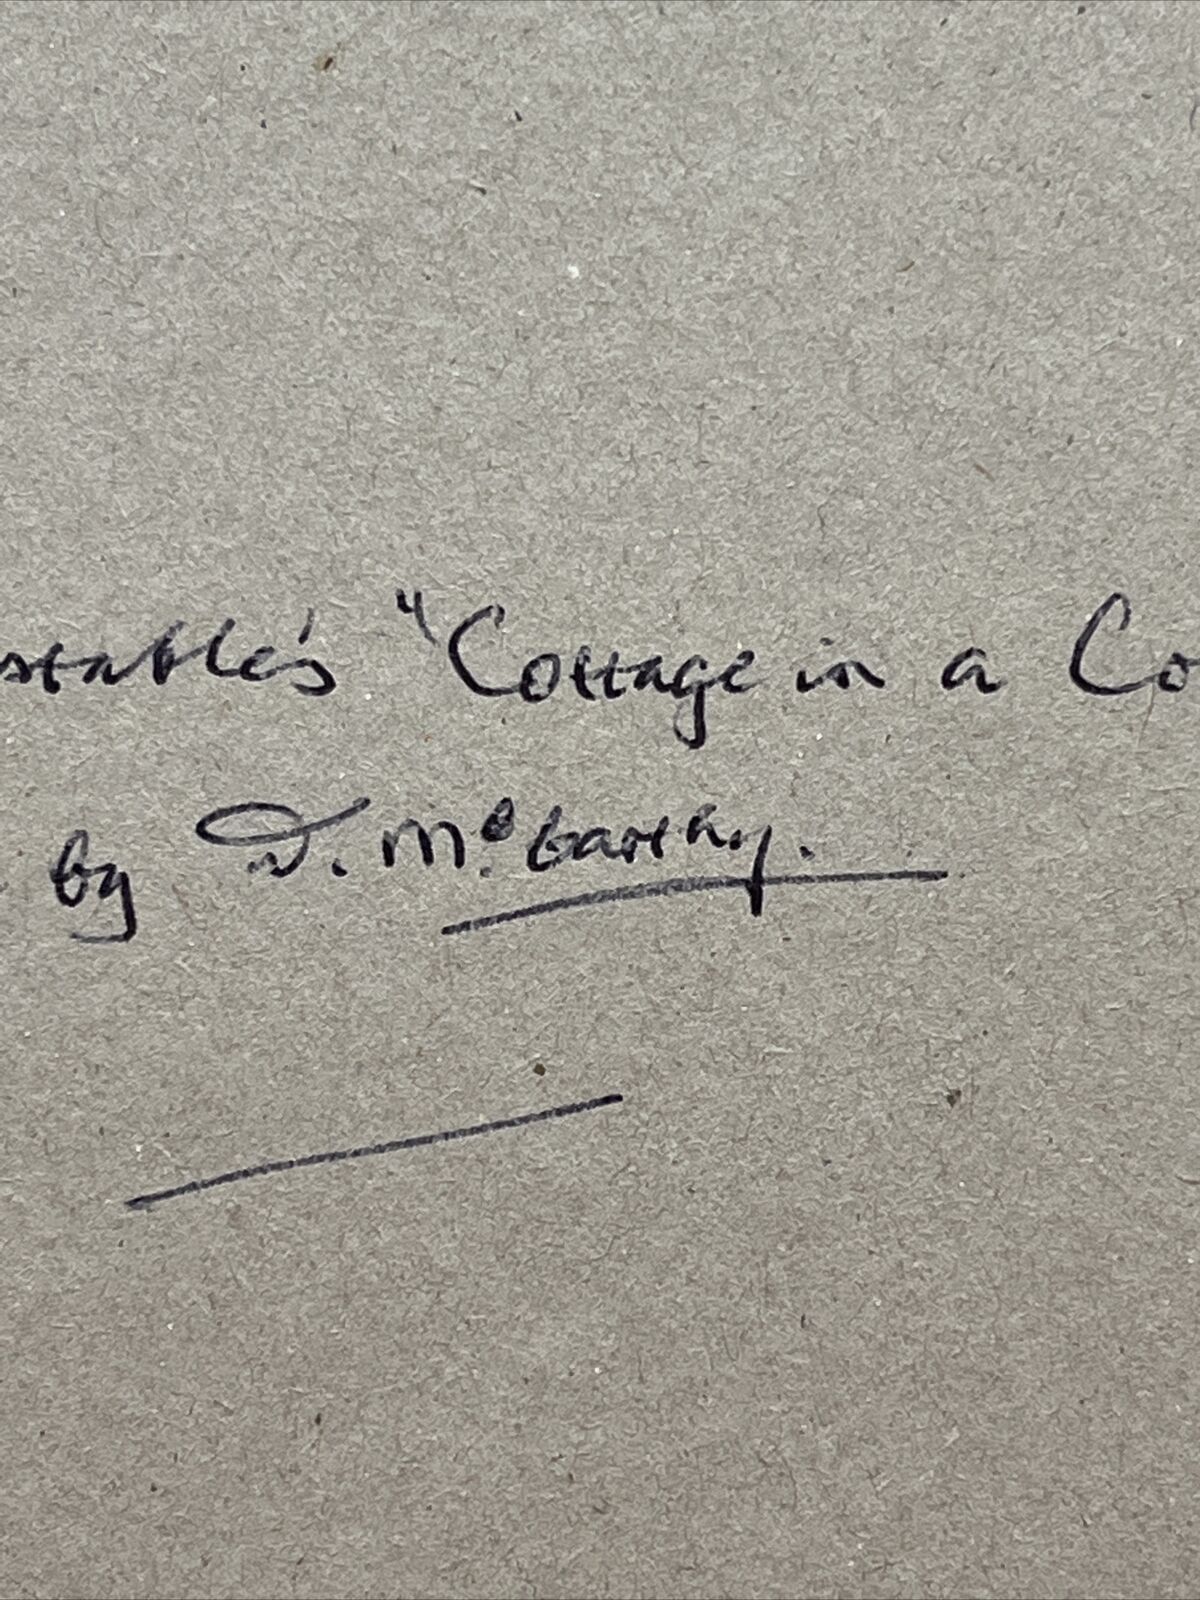 stable's "Cottage in a Co
by D. McCarthy.